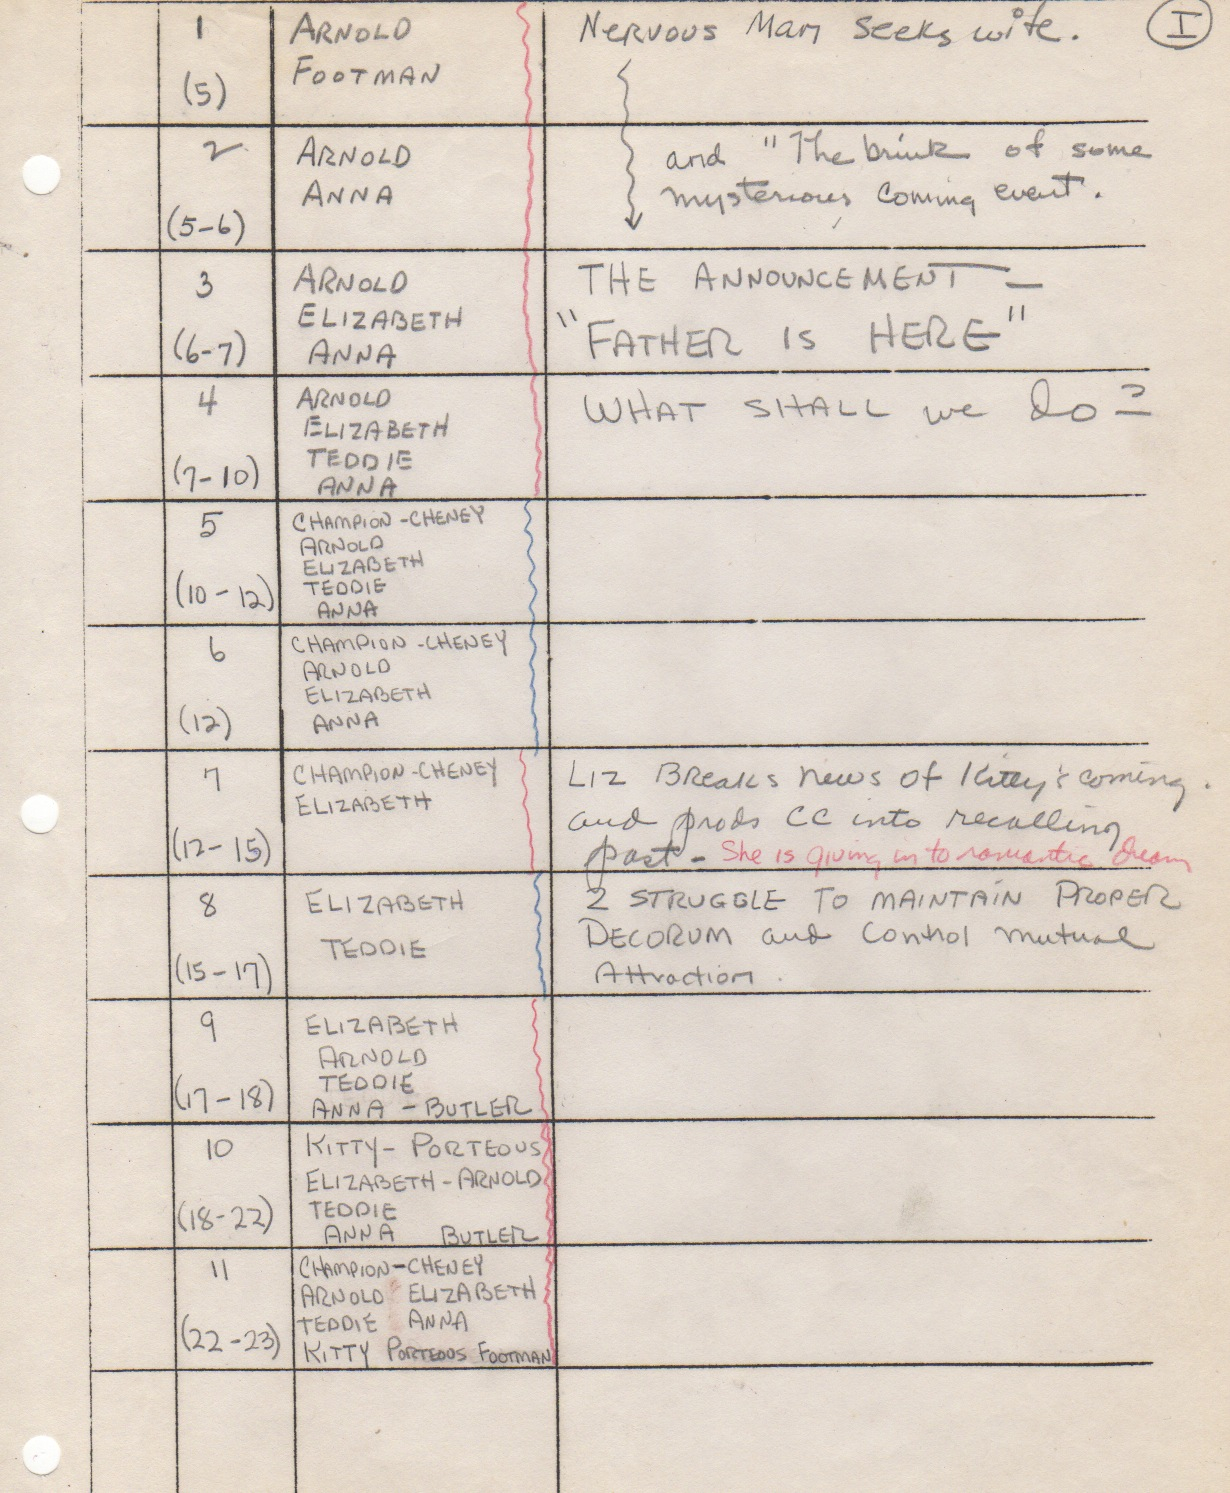 I
1
ARNOLD
FOOTMAN
(5)
Nervous Man seeks wife.
2
ARNOLD
ANNA
(5-6)
and "The brink of some
mysterious coming event.
3
ARNOLD
ELIZABETH
ANNA
(6-7)
THE ANNOUNCEMENT —
"FATHER IS HERE"
4
ARNOLD
ELIZABETH
TEDDIE
ANNA
(7-10)
WHAT SHALL we do?
5
CHAMPION-CHENEY
ARNOLD
ELIZABETH
TEDDIE
ANNA
(10-12)
6
CHAMPION-CHENEY
ARNOLD
ELIZABETH
ANNA
(12)
7
CHAMPION-CHENEY
ELIZABETH
(12-15)
LIZ Breaks news of Kitty's coming.
and prods CC into recalling
past - She is giving in to romantic dream
8
ELIZABETH
TEDDIE
(15-17)
2 STRUGGLE TO MAINTAIN PROPER
DECORUM and control mutual
Attraction.
9
ELIZABETH
ARNOLD
TEDDIE
ANNA - BUTLER
(17-18)
10
KITTY - PORTEOUS
ELIZABETH - ARNOLD
TEDDIE
ANNA BUTLER
(18-22)
11
CHAMPION-CHENEY
ARNOLD ELIZABETH
TEDDIE ANNA
KITTY PORTEOUS FOOTMAN
(22-23)